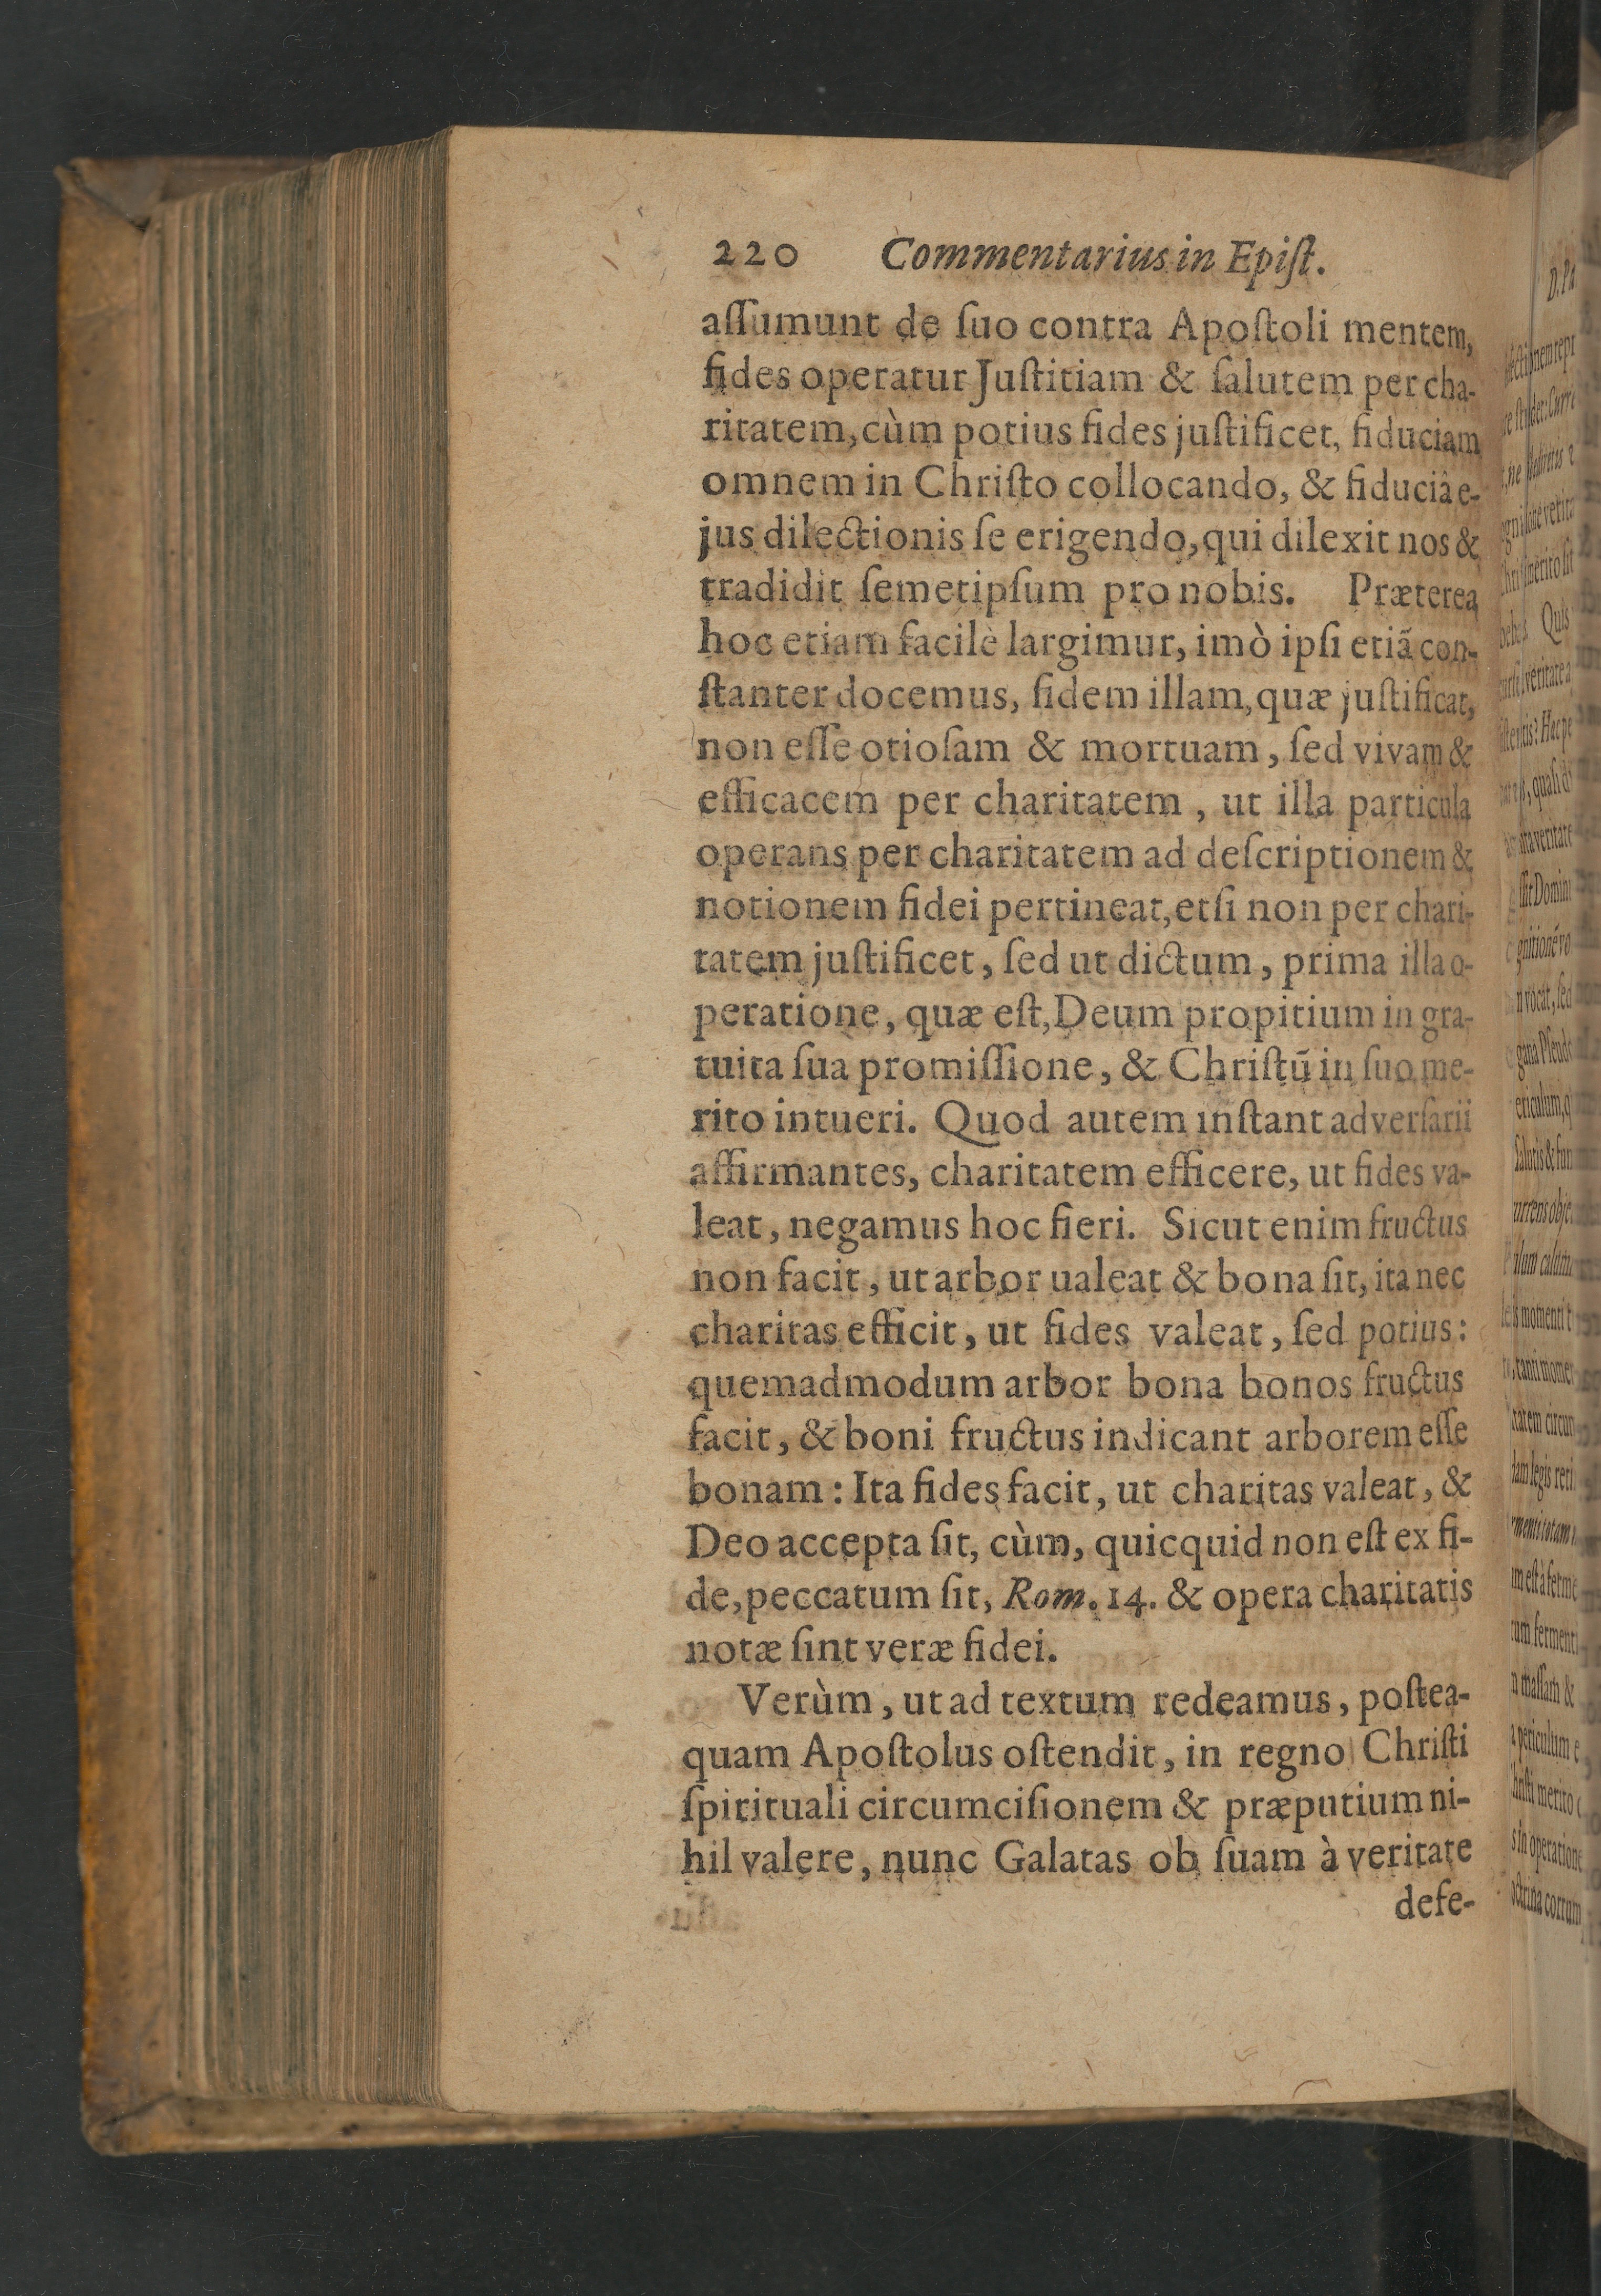 220 Commentarius in Epiſt.
aſſumunt de ſuo contra Apoſtoli mentem,
fides operatur Juſtitiam & ſalutem per cha-
ritatem, cùm potius fides juſtificet, fiduciam
omnem in Chriſto collocando, & fiduciâ e-
jus dilectionis ſe erigendo, qui dilexit nos &
tradidit ſemetipſum pro nobis. Præterea
hoc etiam facilè largimur, imò ipſi etiã con-
ſtanter docemus, fidem illam, quæ juſtificat,
non eſſe otioſam & mortuam, ſed vivam &
efficacem per charitatem, ut illa particula
operans per charitatem ad deſcriptionem &
notionem fidei pertineat, etſi non per chari-
tatem juſtificet, ſed ut dictum, prima illa o-
peratione, quæ eſt, Deum propitium in gra-
tuita ſua promiſſione, & Chriſtū in ſuo me-
rito intueri. Quod autem inſtant adverſarii
affirmantes, charitatem efficere, ut fides va-
leat, negamus hoc fieri. Sicut enim fructus
non facit, ut arbor ualeat & bona ſit, ita nec
charitas efficit, ut fides valeat, ſed potius:
quemadmodum arbor bona bonos fructus
facit, & boni fructus indicant arborem eſſe
bonam: Ita fides facit, ut charitas valeat, &
Deo accepta ſit, cùm, quicquid non eſt ex fi-
de, peccatum ſit, Rom. 14. & opera charitatis
notæ ſint veræ fidei.
Verùm, ut ad textum redeamus, poſtea-
quam Apoſtolus oſtendit, in regno Chriſti
ſpirituali circumciſionem & præputium ni-
hil valere, nunc Galatas ob ſuam à veritate
defe-